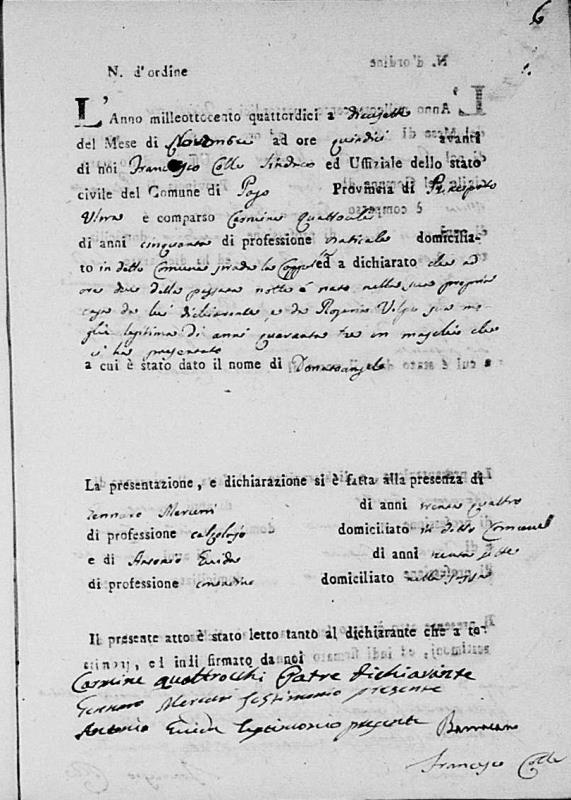 6
N. d'ordine
L'Anno milleottocento quattordici a diecisette
del Mese di Novembre ad ore quindici avanti
di noi Francesco Colle Sindaco ed Uffiziale dello stato
civile del Comune di Pago Provincia di Principato
Ultra è comparso Carmine Quattrocchi
di anni cinquanta di professione domicilia-
to in detto Comune strada la ed a dichiarato che ad
ore dieci della passata notte è nato nella sua propria
casa da lui dichiarante e da Rosaria Volpe sua mo-
glie legitima di anni quaranta tre un maschio che
ci ha presentato
a cui è stato dato il nome di Donatoangelo
La presentazione, e dichiarazione si è fatta alla presenza di
Gennaro Mercuri di anni trenta quattro
di professione calzolajo domiciliato in detto Comune
e di Antonio Guida di anni trenta sette
di professione contadino domiciliato nello stesso
Il presente atto è stato letto tanto al dichiarante che a te-
stimonj, ed indi firmato da noi
Carmine quattrocchi Patre dichiarante
Gennaro Mercuri testimonio presente
Antonio Guida testimonio presente
Francesco Colle